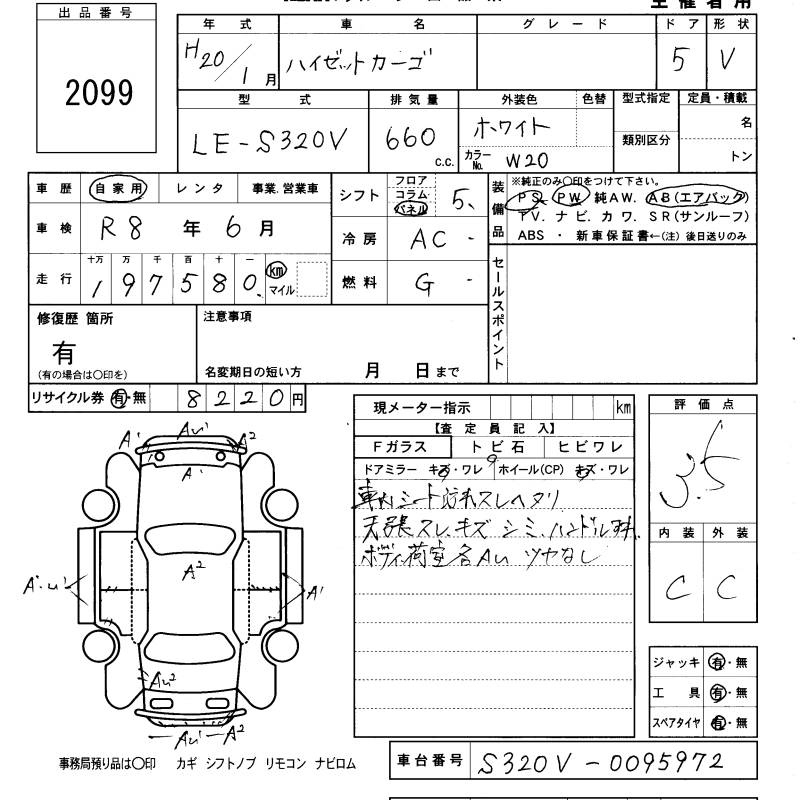 主催者用
出品番号
2099
年式 車名 グレード ドア 形状
H20/1月 ハイゼットカーゴ 5 V
型式 排気量 外装色 色替 型式指定 定員・積載
LE-S320V 660 c.c. ホワイト 類別区分 名
カラーNo. W20 トン
車歴 自家用 レンタ 事業.営業車
シフト フロア コラム パネル 5、
装備品 ※純正のみ〇印をつけて下さい。
PS. PW. 純AW. AB(エアバック)
TV. ナビ. カワ. SR(サンルーフ)
ABS ・ 新車保証書←(注)後日送りのみ
車検 R8年6月
冷房 AC -
走行 十万 万 千 百 十 一
197580. km マイル
燃料 G -
セールスポイント
修復歴 箇所 注意事項
有
(有の場合は〇印を) 名変期日の短い方 月 日まで
リサイクル券 有・無 8220円
現メーター指示 km
【査定員記入】
Fガラス トビ石 ヒビワレ
ドアミラー キズ・ワレ ホイール(CP) キズ・ワレ
車内シート汚れスレヘタリ
天張スレ、キズ シミ、ハンドル
ボディ、荷室各AU ツヤなし
評価点
3.5
内装 外装
C C
A' AU' A2
A'
A2
A'.U' A'
AU2
AU' A2
ジャッキ 有・無
工具 有・無
スペアタイヤ 有・無
事務局預り品は〇印 カギ シフトノブ リモコン ナビロム
車台番号 S320V-0095972